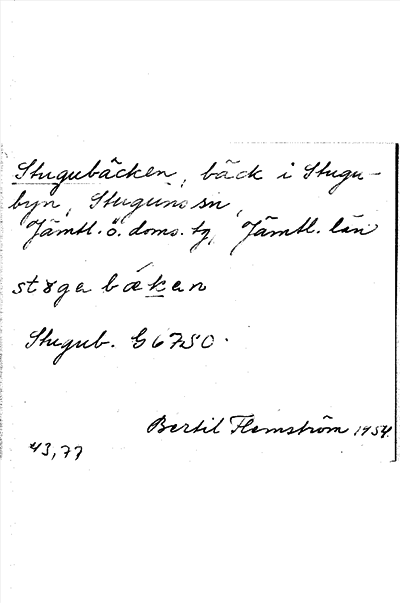 Stugubäcken, bäck i Stugu-
byn, Stuguns sn,
Jämtl. ö. doms. tg, Jämtl. län
støga bækan
Stugub. G6750.
Bertil Flemström 1954.
43,77